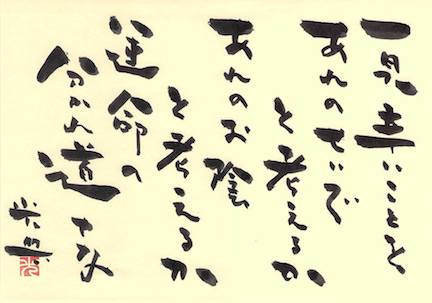 一見辛いことを
あれのせいで
と考えるか
あれのお陰
と考えるか
運命の
分かれ道やな